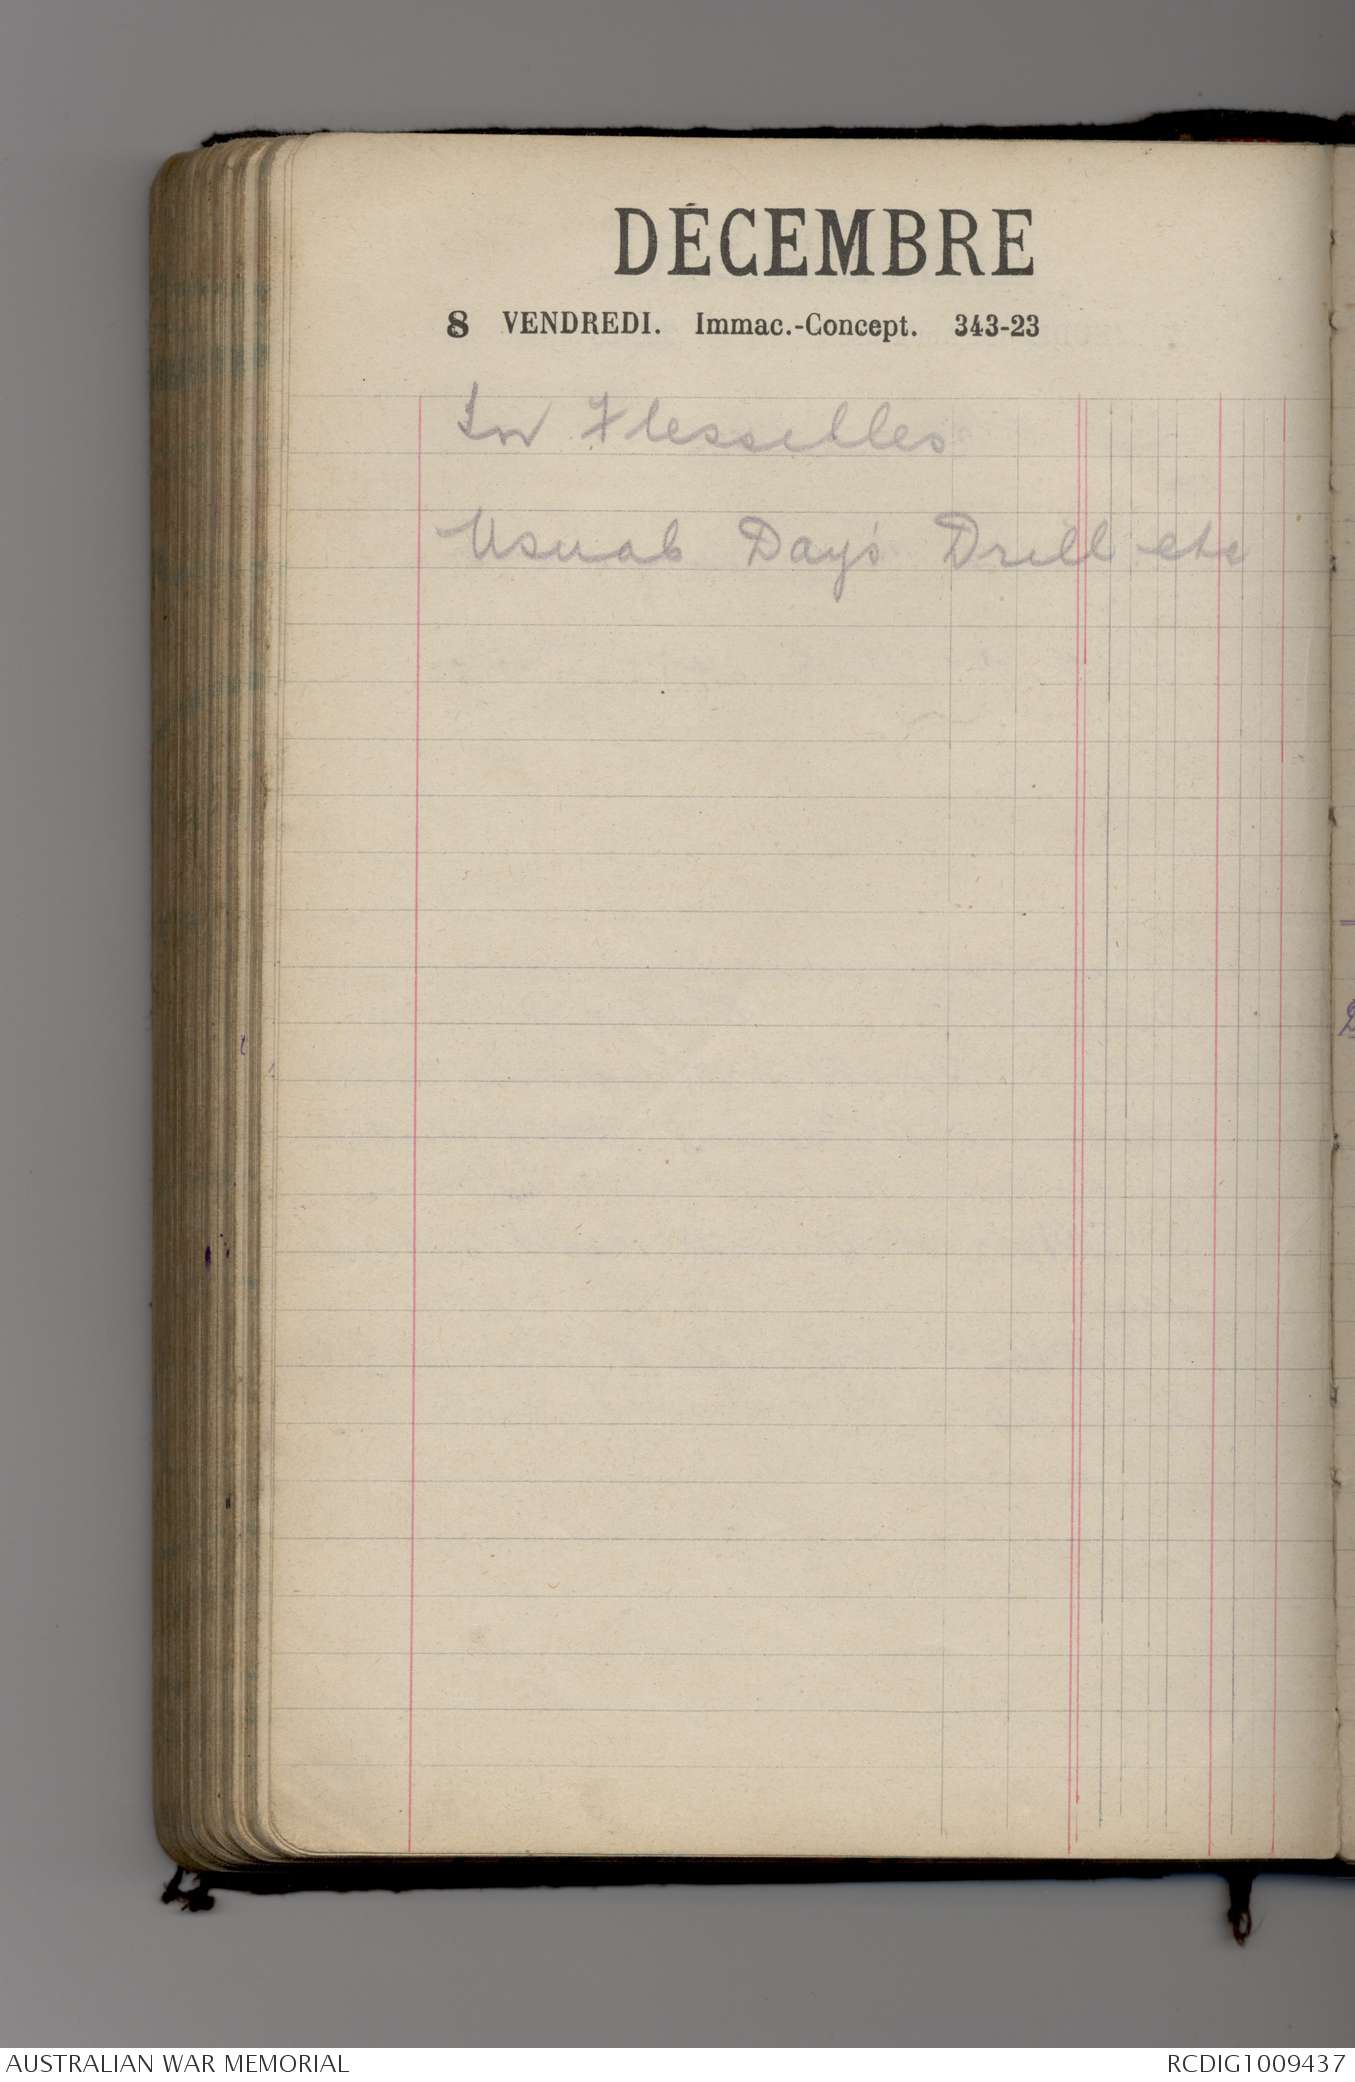 DÉCEMBRE
8 VENDREDI. Immac.-Concept. 343-23
In Flesselles
Usual Day's Drill etc
AUSTRALIAN WAR MEMORIAL
RCDIG1009437